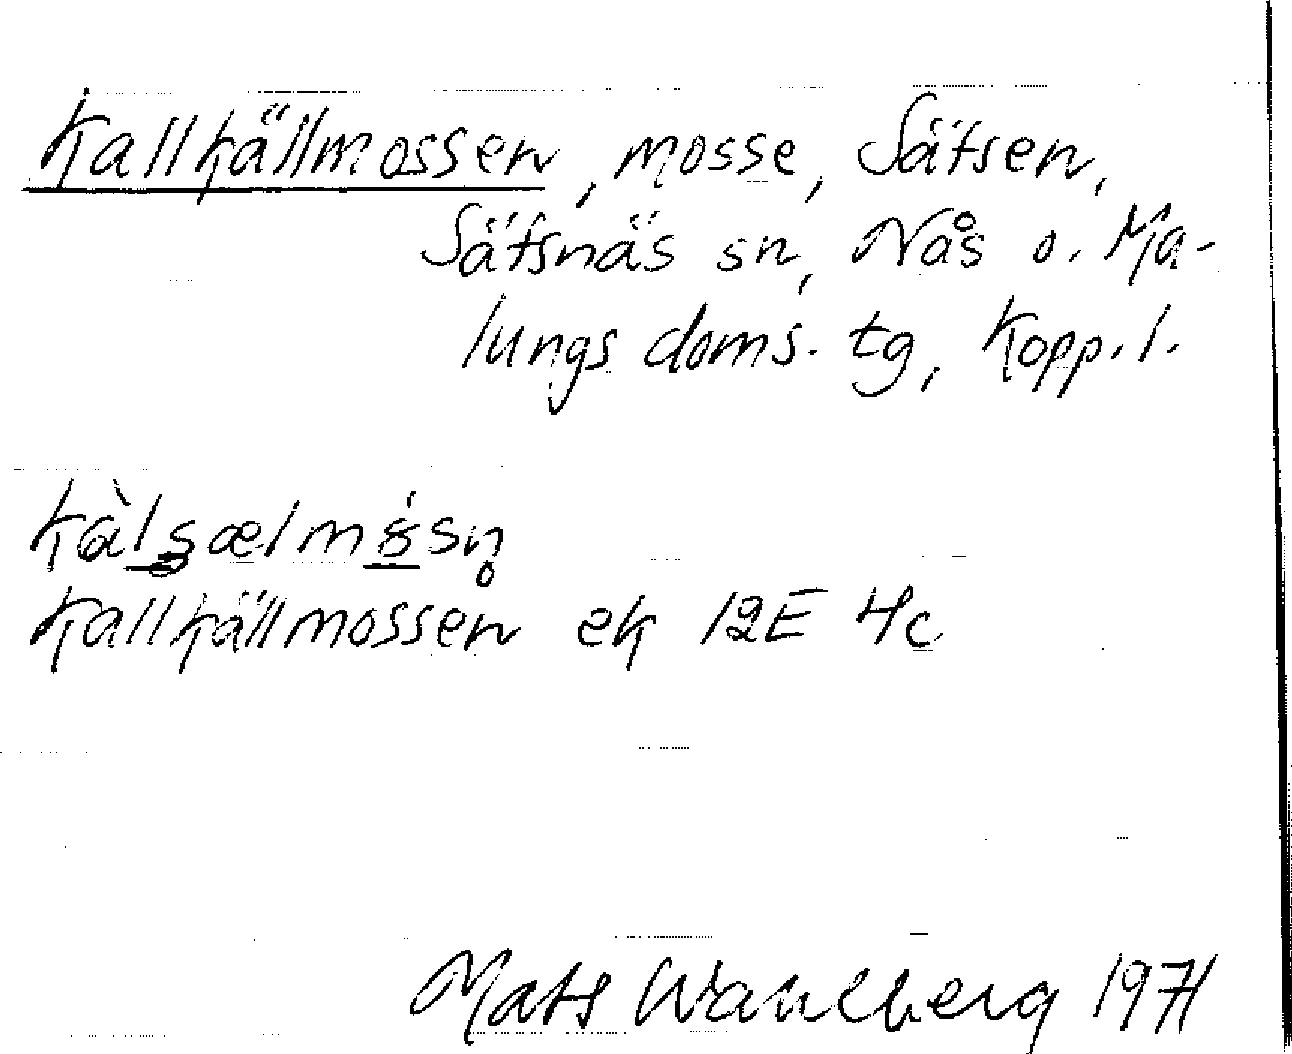 Kallkällmossen, mosse, Sätsen,
Sätsnäs sn, Nås o. Ma-
lungs doms. tg, Kopp. l.
Kallkällmossen ek 12E 4c
Mats Wahlberg 1971